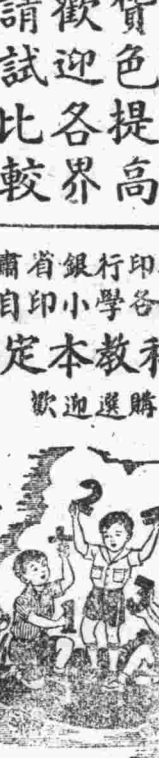 貨色提高
歡迎各界
請試比較
肅省銀行印
自印小學各
定本教科
歡迎選購